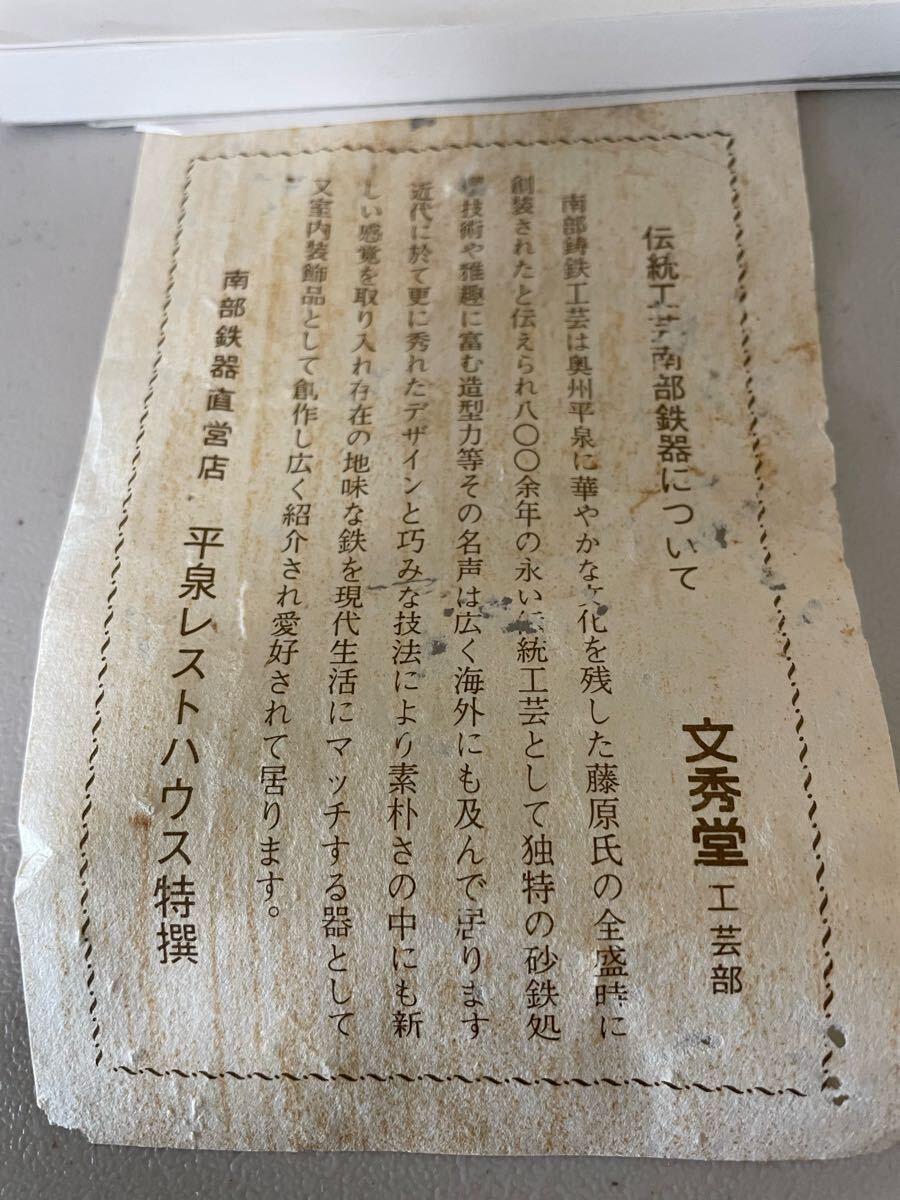 伝統工芸南部鉄器について
文秀堂 工芸部
南部鋳鉄工芸は奥州平泉に華やかな文化を残した藤原氏の全盛時に
創装されたと伝えられ八〇〇余年の永い伝統工芸として独特の砂鉄処
技術や雅趣に富む造型力等その名声は広く海外にも及んで居ります
近代に於て更に秀れたデザインと巧みな技法により素朴さの中にも新
しい感覚を取り入れ存在の地味な鉄を現代生活にマッチする器として
又室内装飾品として創作し広く紹介され愛好されて居ります。
南部鉄器直営店 平泉レストハウス特撰